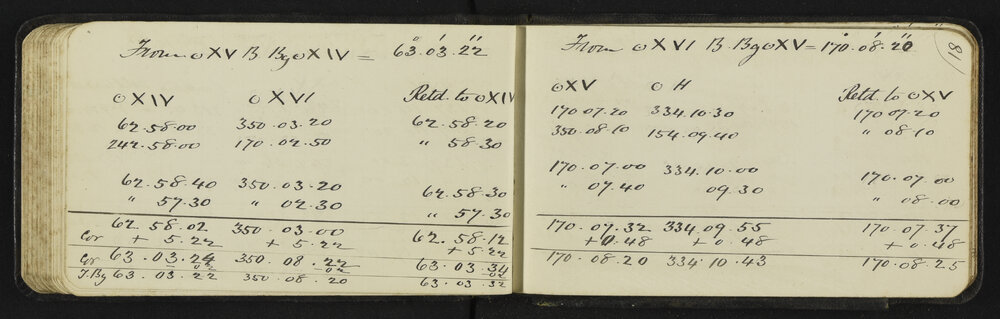 From ⊙XV B. By ⊙XIV = 63°.03'.22"
⊙XIV ⊙XVI Retd. to ⊙XIV
62.58.00 350.03.20 62.58.20
242.58.00 170.02.50 " 58.30
62.58.40 350.03.20 62.58.30
" 57.30 " 02.30 " 57.30
62.58.02 350.03.00 62.58.12
Cor + 5.22 + 5.22 + 5.22
Cor 63.03.24 350.08.22 63.03.34
02 02 02
T.By 63.03.22 350.08.20 63.03.32
81
From ⊙XVI B. By ⊙XV = 170°.08'.20"
⊙XV ⊙H Retd. to ⊙XV
170.07.20 334.10.30 170.07.20
350.08.10 154.09.40 " 08.10
170.07.00 334.10.00 170.07.00
" 07.40 09.30 " 08.00
170.07.32 334.09.55 170.07.37
+0.48 +0.48 +0.48
170.08.20 334.10.43 170.08.25